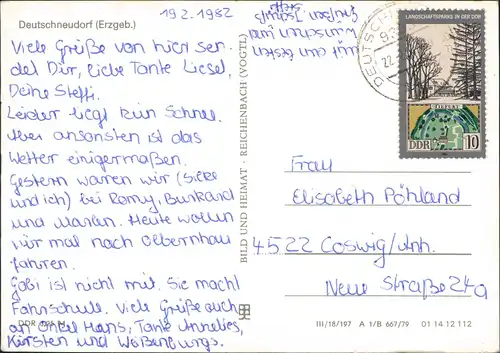 Deutschneudorf (Erzgeb.)
19.2.1982
Viele Grüße von hier sen-
det Dir, liebe Tante Liesel,
Deine Steffi.
Leider liegt kein Schnee.
Aber ansonsten ist das
Wetter einigermaßen.
Gestern waren wir (Silke
und ich) bei Romy, Burkard
und Marlen. Heute wollen
wir mal nach Olbernhau
fahren.
Gabi ist nicht mit. Sie macht
Fahnschule. Viele Grüße auch
an Onkel Hans, Tante Annelies,
Kirsten und Weißenburgs.
BILD UND HEIMAT · REICHENBACH (VOGTL)
DEUTSCH
LANDSCHAFTSPARKS IN DER DDR
DDR 10
Frau
Elisabeth Pöhland
4522 Coswig/Anh.
Neue Straße 24a
III/18/197 A 1/B 667/79 01 14 12 112